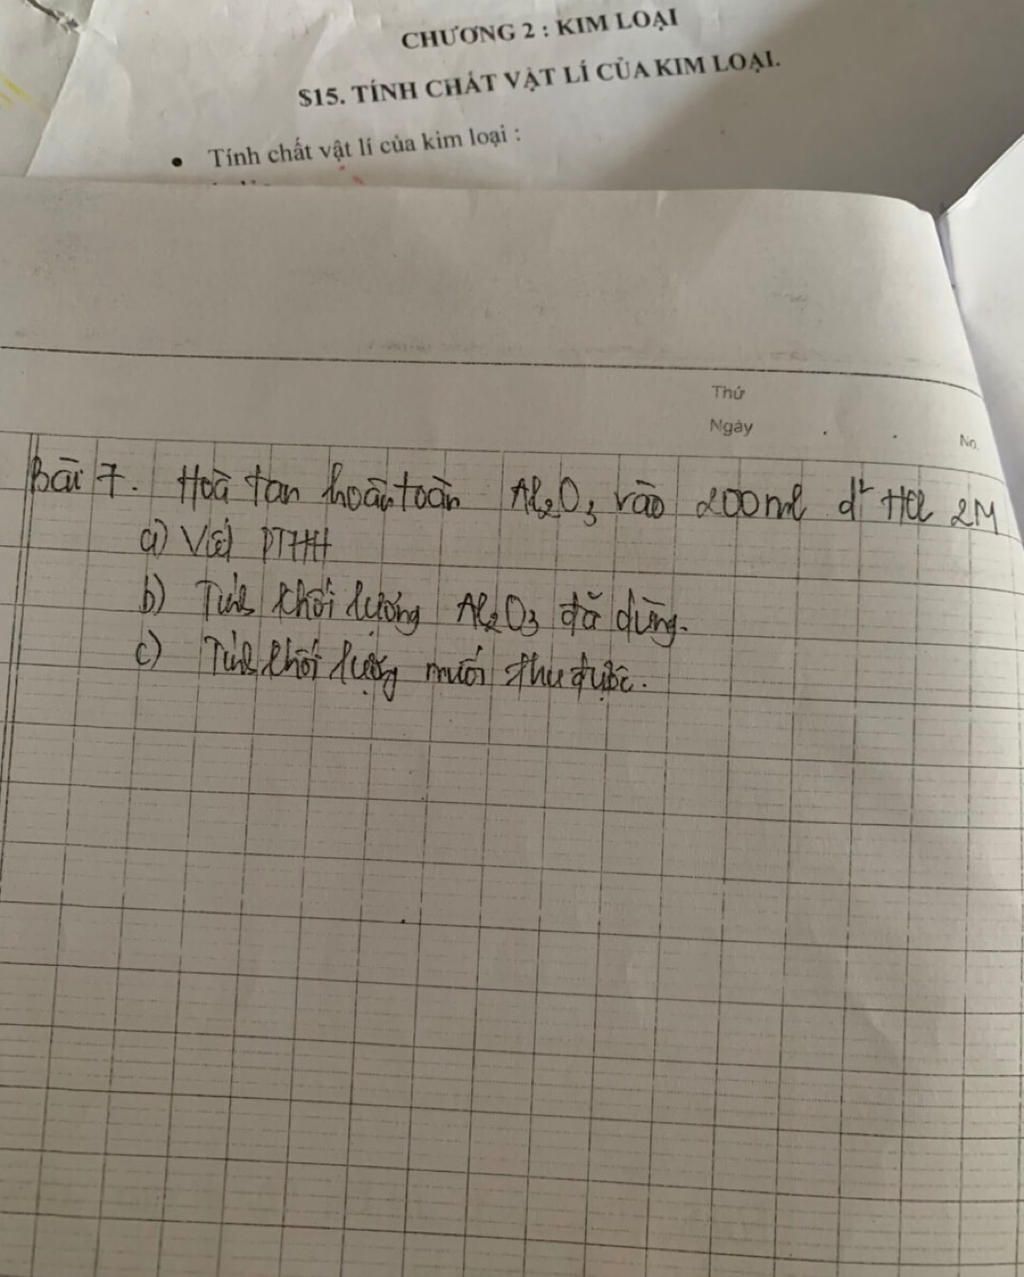 CHƯƠNG 2 : KIM LOẠI
§15. TÍNH CHẤT VẬT LÍ CỦA KIM LOẠI.
• Tính chất vật lí của kim loại :
Thứ
Ngày
No.
Bài 7. Hoà tan hoàn toàn Al₂O₃ vào 200ml d² HCl 2M
a) Viết PTHH
b) Tính khối lượng Al₂O₃ đã dùng.
c) Tính khối lượng muối thu được.